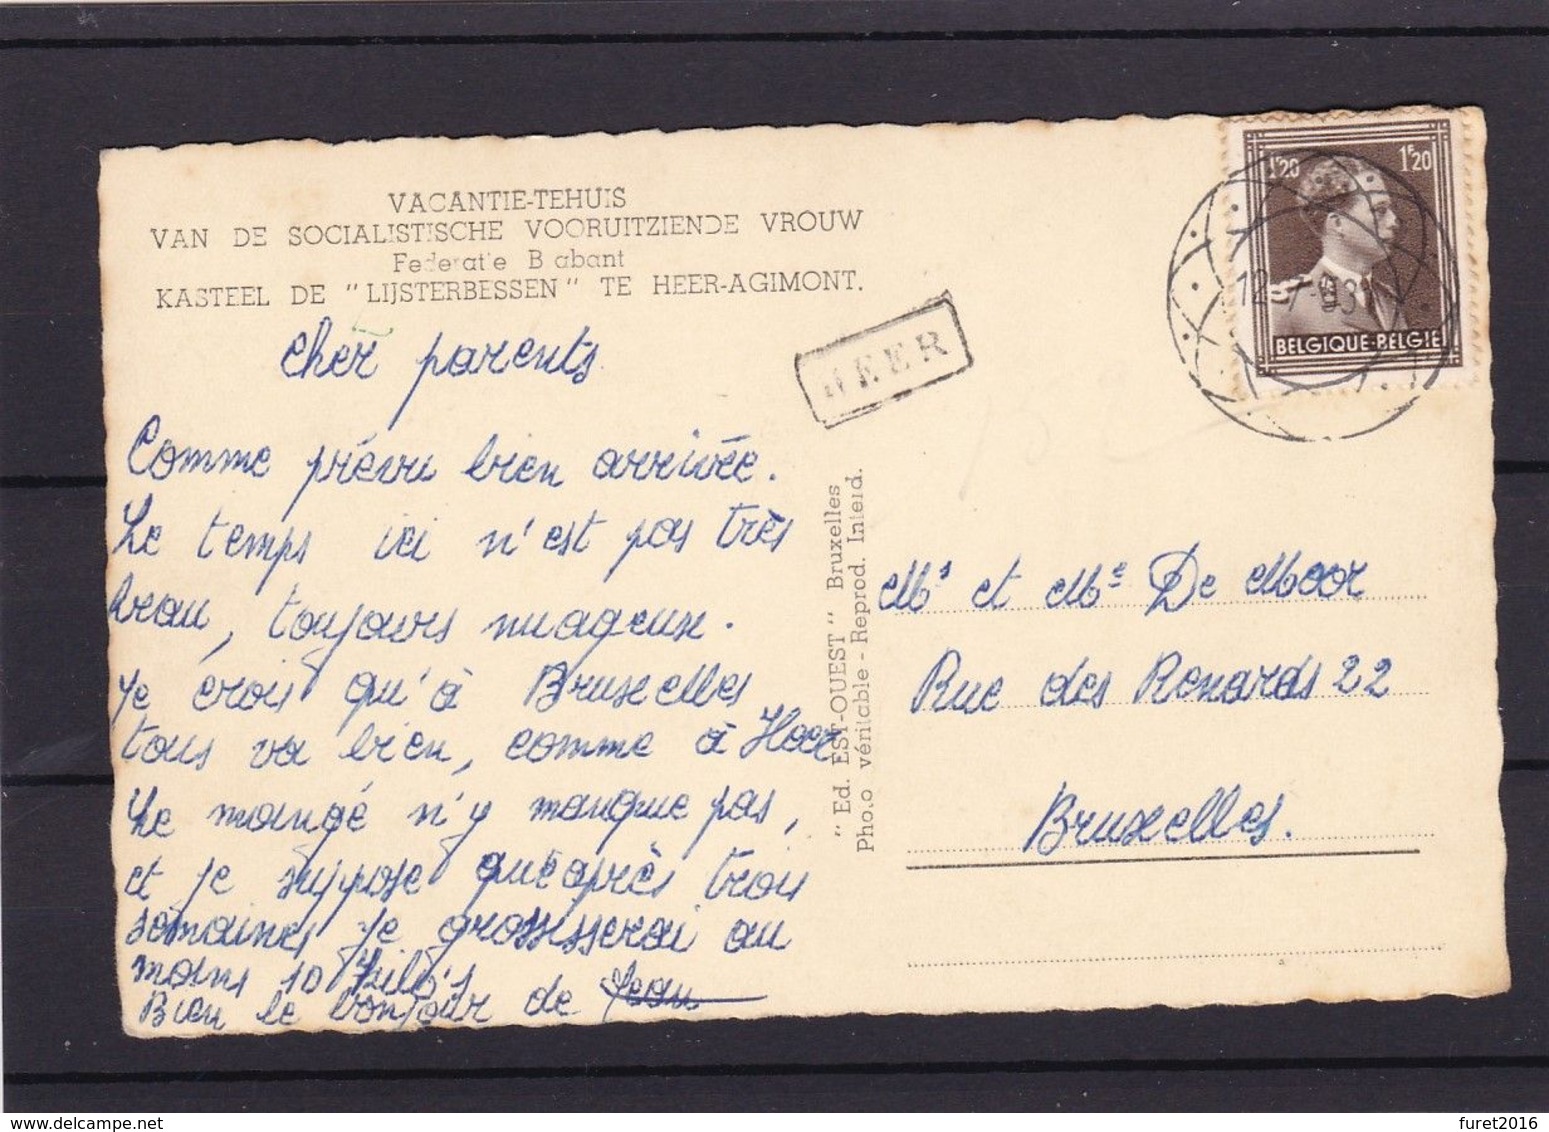 VACANTIE-TEHUIS
VAN DE SOCIALISTISCHE VOORUITZIENDE VROUW
Federatie Brabant
KASTEEL DE "LIJSTERBESSEN" TE HEER-AGIMONT.
cher parents
Comme prévu bien arrivée.
Le temps ici n'est pas très
beau, toujours nuageux.
Je crois qu'à Bruxelles
tous va bien, comme à Heer
Le mangé n'y manque pas,
et je suppose que après trois
semaines je grossisserai au
moins 10 kilo's
Bien le bonjour de Jean
HEER
"Ed. EST-OUEST" Bruxelles
Photo véritable - Reprod. Interd.
1F20
1F20
BELGIQUE-BELGIE
12-7-53
Mr et Me De Moor
Rue des Renards 22
Bruxelles.
furet2016
delcampe.net